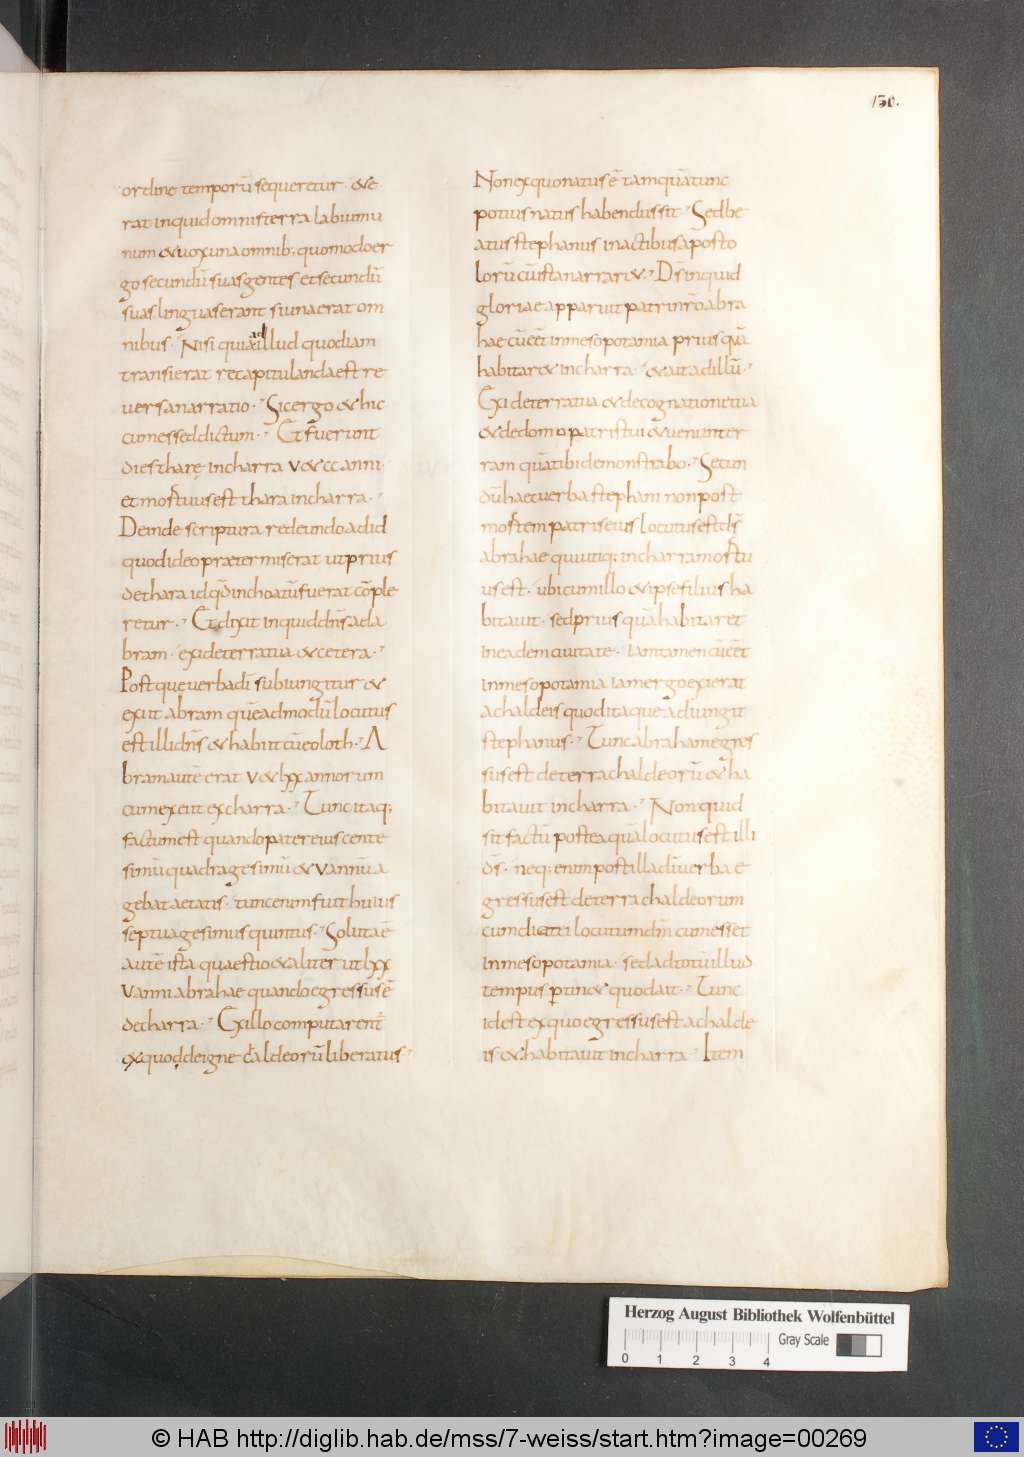 130.
ordine temporū sequeretur · & e
rat inquid omnis terra labium u
num & uox una omnib; quomodo er
go secundū suas gentes et secundū
suas linguas erant si una erat om
nibus · Nisi quia ad illud quod iam
transierat recapitulanda est re
uersa narratio · Sic ergo & hic
cum esset dictum · Et fuerunt
dies tharę in charra V & cc anni ·
et mortuus est thara in charra ·
Deinde scriptura redeundo ad id
quod ideo prætermiserat ut prius
de thara id qđ inchoatū fuerat cōple
retur · Et dixit inquid dn̄s ad a
bram · exi de terra tua & cetera ·
Post que uerba dī subiungitur &
exiit abram quēadmodū locutus
est illi dn̄s & habiit cū eo loth · A
bram autē erat V & lxx annorum
cum exiit ex charra · Tunc itaq;
factum est quando pater eius cente
simū quadragesimū & V annū a
gebat aetatis · tunc enim fuit huius
septuagesimus quintus · Soluta ē
autē ista quaestio & aliter ut lxx
V anni abrahae quando egressus ē
de charra · Ex illo computarent̄
ex quo de igne chaldeorū liberatus
Non ex quo natus ē tamquā tunc
potius natus habendus sit · Sed be
atus stephanus in actibus aposto
lorū cū ista narrar& · D̄s inquid
gloriae apparuit patri nr̄o abra
hae cū eēt in mesopotamia prius quā
habitar& in charra · & ait ad illū ·
Exi de terra tua & de cognatione tua
& de domo patris tui & ueni in ter
ram quā tibi demonstrabo · Secun
dū haec uerba stephani non post
mortem patris eius locutus est d̄s
abrahae qui utiq; in charra mortu
us est · ubi cum illo & ipse filius ha
bitauit · sed prius quā habitaret
in eadem ciuitate · iam tamen cū eēt
in mesopotamia iam ergo exierat
a chaldeis quod itaque adiungit
stephanus · Tunc abraham egres
sus est de terra chaldeorū & ha
bitauit in charra · Non quid
sit factū postea quā locutus est illi
d̄s · neq; enim post illa dī uerba e
gressus est de terra chaldeorum
cum dicat ei locutum dm̄ cum esset
in mesopotamia · sed ad totū illud
tempus ptin& quod ait · Tunc
id est ex quo egressus est a chalde
is & habitauit in charra · Item
Herzog August Bibliothek Wolfenbüttel
Gray Scale
0 1 2 3 4
© HAB http://diglib.hab.de/mss/7-weiss/start.htm?image=00269